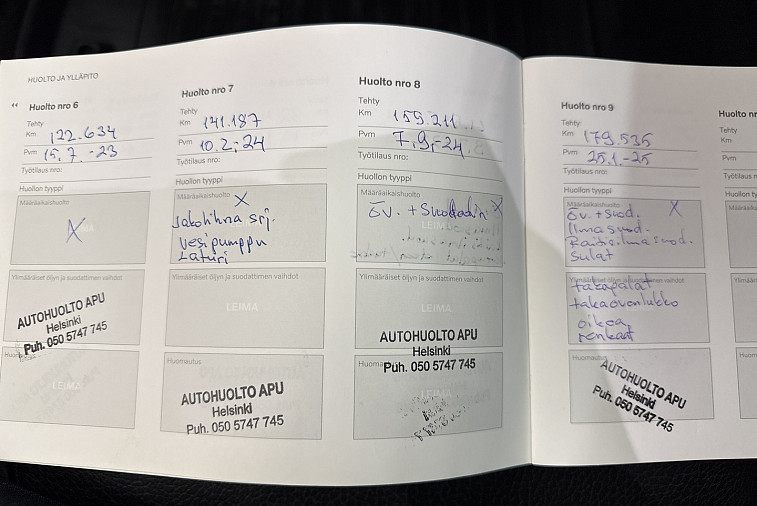 HUOLTO JA YLLÄPITO
Huolto nro 6
Tehty
Km 122.634
Pvm 15.7.-23
Työtilaus nro:
Huollon tyyppi
Määräaikaishuolto
X
Ylimääräiset öljyn ja suodattimen vaihdot
AUTOHUOLTO APU
Helsinki
Puh. 050 5747 745
LEIMA
Huolto nro 7
Tehty
Km 141.187
Pvm 10.2.-24
Työtilaus nro:
Huollon tyyppi
Määräaikaishuolto X
Jakohihna srj.
Vesipumppu
Laturi
Ylimääräiset öljyn ja suodattimen vaihdot
LEIMA
Huomautus
AUTOHUOLTO APU
Helsinki
Puh. 050 5747 745
Huolto nro 8
Tehty
Km 159.211
Pvm 7.9.-24
Työtilaus nro:
Huollon tyyppi
Määräaikaishuolto
Öv. + Suodadin X
LEIMA
Ylimääräiset öljyn ja suodattimen vaihdot
LEIMA
AUTOHUOLTO APU
Helsinki
Puh. 050 5747 745
LEIMA
Huolto nro 9
Tehty
Km 179.535
Pvm 25.1.-25
Työtilaus nro:
Huollon tyyppi
Määräaikaishuolto X
Öv. + suod.
Ilmasuod.
Raitisilmasuod.
Sulat
Ylimääräiset öljyn ja suodattimen vaihdot
takapalat
takaovenlukko
oikea
renkaat
Huomautus
AUTOHUOLTO APU
Helsinki
Puh. 050 5747 745
Tehty
Km
Pvm